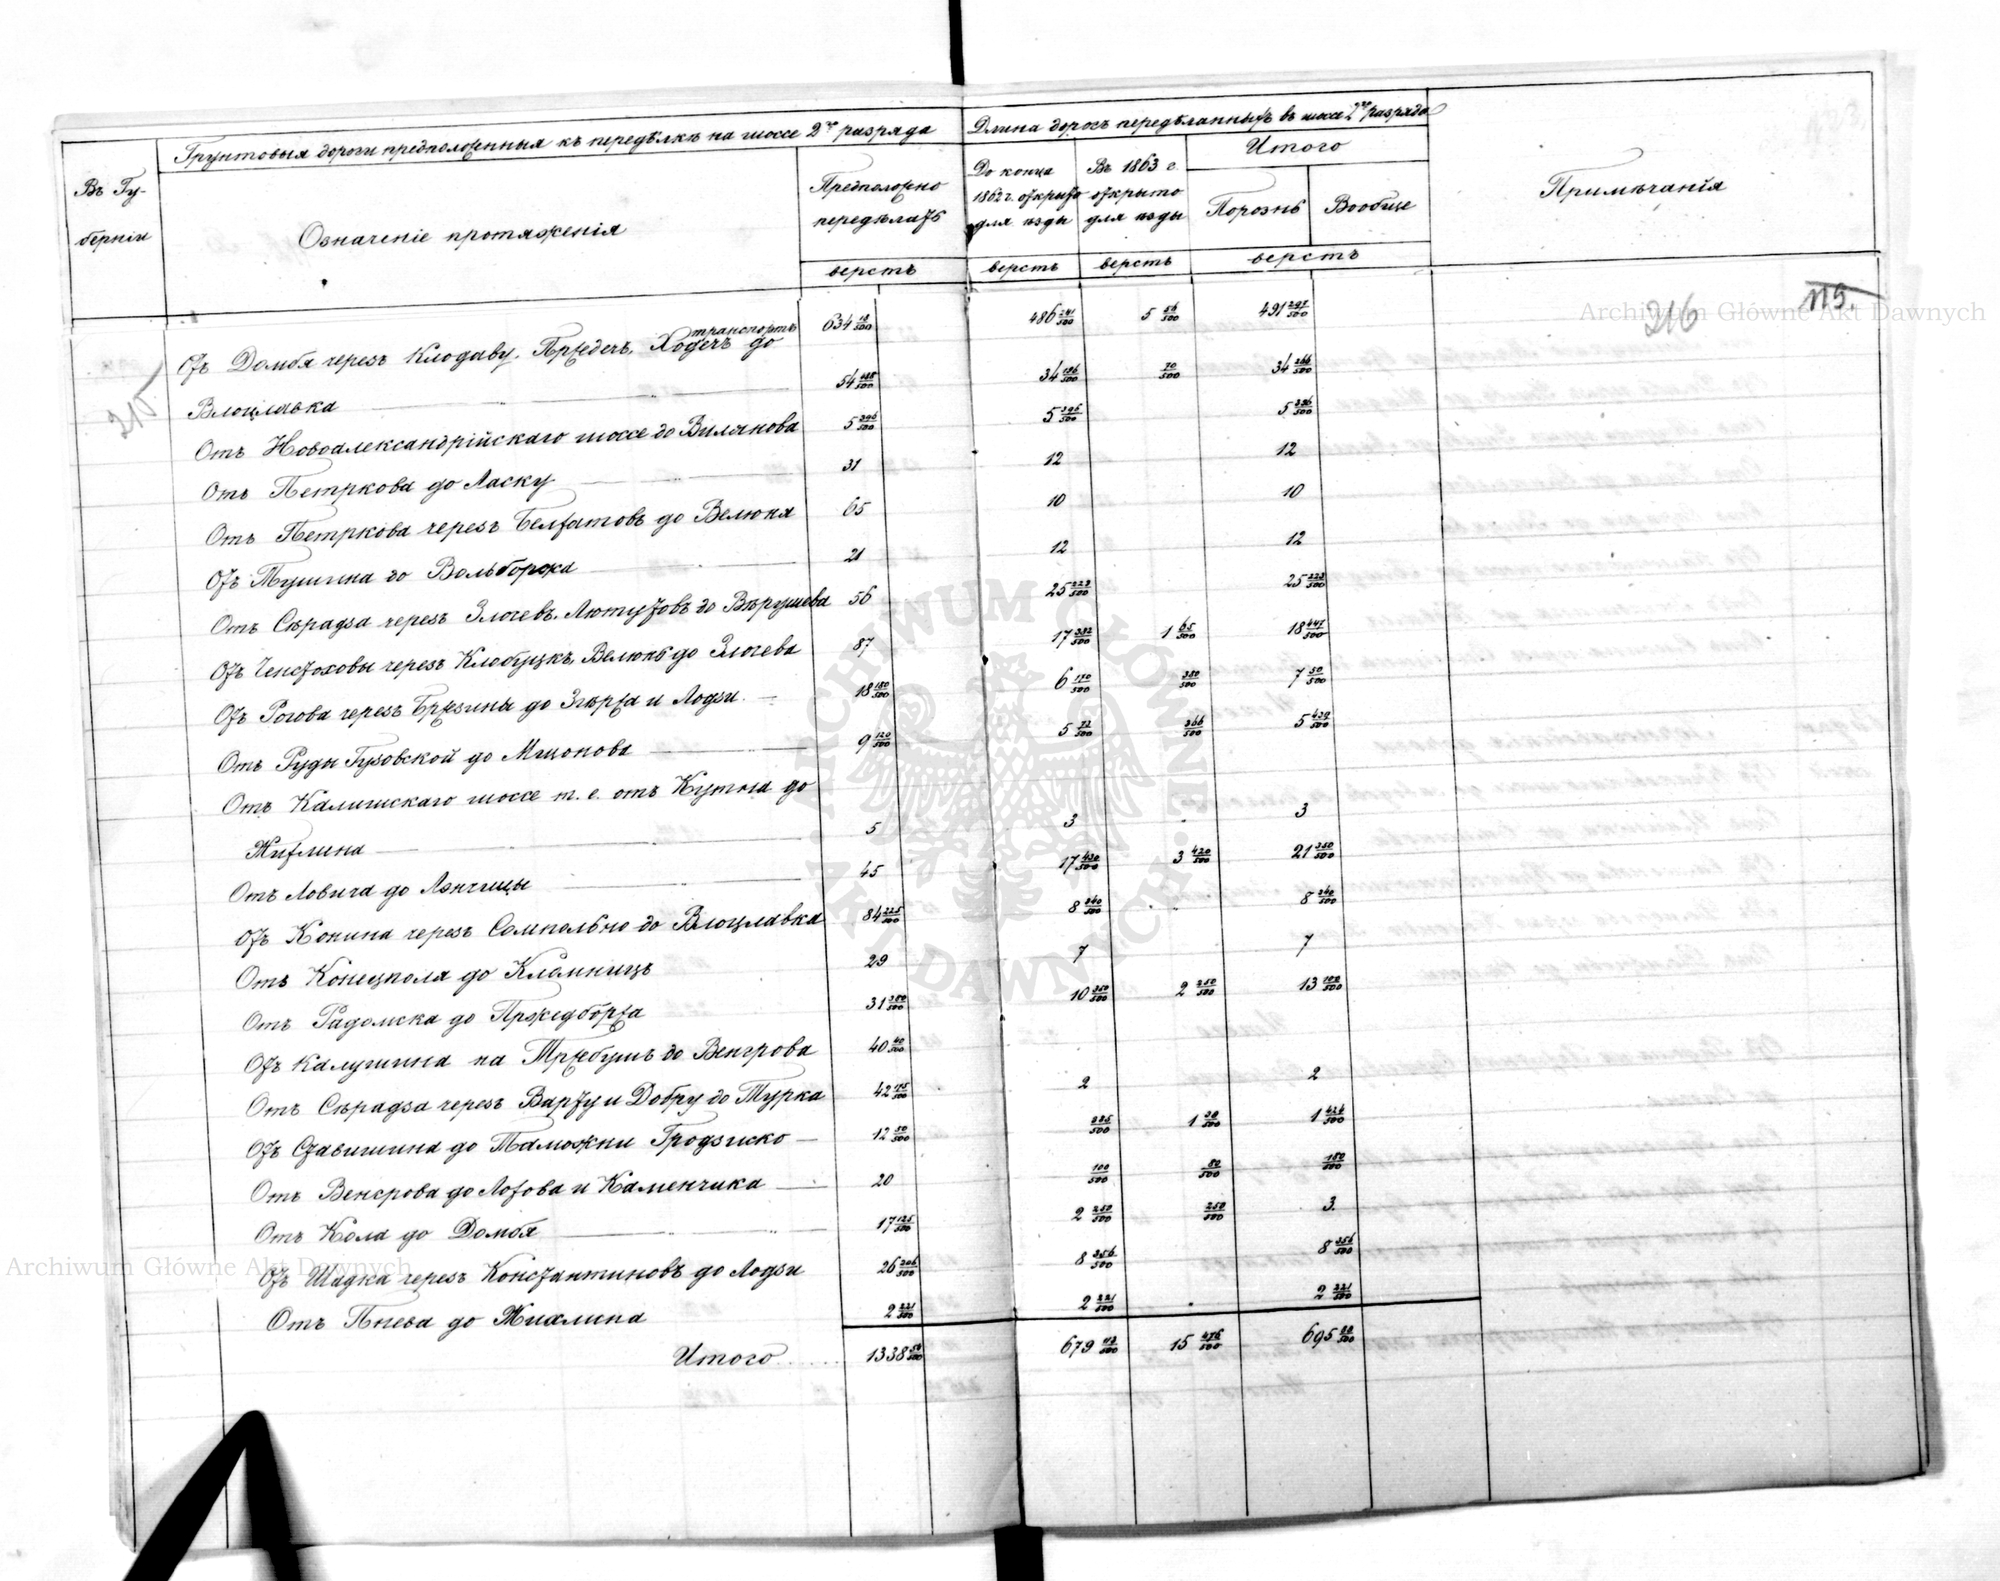 Грунтовыя дороги предположенныя къ передѣлкѣ на шоссе 2го разряда
Длина дорогъ передѣланныхъ въ шоссе 2го разряда
Въ Гу-
берніи
Означеніе протяженія
Предположено
передѣлать
До конца
1862 г. открыто
для ѣзды
Въ 1863 г.
открыто
для ѣзды
Итого
Порознь Вообще
Примѣчанія
верстъ верстъ верстъ верстъ
транспортъ 634 18/500 486 241/500 5 56/500 491 297/500
216 115.
215
Отъ Домбя черезъ Клодаву, Пржедечъ, Ходечъ до
Влоцлавка 54 488/500 34 196/500 70/500 34 266/500
Отъ Новоалександрійскаго шоссе до Вилянова 5 296/500 5 296/500 5 296/500
Отъ Петркова до Ласку 31 12 12
Отъ Петркова черезъ Белхатовъ до Велюня 65 10 10
Отъ Тушина до Вольборжа 21 12 12
Отъ Сѣрадза черезъ Злочевъ, Лютутовъ до Вѣрушева 56 25 223/500 25 223/500
Отъ Ченстоховы черезъ Клобуцкъ, Велюнь до Злочева 87 17 382/500 1 65/500 18 447/500
Отъ Рогова черезъ Бржезины до Згѣржа и Лодзи 18 180/500 6 170/500 380/500 7 50/500
Отъ Руды Гузовской до Мщонова 9 120/500 5 72/500 366/500 5 438/500
Отъ Калишскаго шоссе т. е. отъ Кутна до
Жихлина 5 3 3
Отъ Ловича до Лэнчицы 45 17 430/500 3 420/500 21 350/500
Отъ Конина черезъ Сомпольно до Влоцлавка 84 225/500 8 240/500 8 240/500
Отъ Конецполя до Кломницъ 29 7 7
Отъ Радомска до Пржедборжа 31 380/500 10 350/500 2 250/500 13 100/500
Отъ Калушина на Тржебушъ до Венгрова 40 40/500
Отъ Сѣрадза черезъ Варту и Добру до Турка 42 175/500 2 2
Отъ Ставишина до Таможни Гродзиско 12 50/500 1
Отъ Венгрова до Лохова и Каменчика 20 100/500 80/500 180/500
Отъ Кола до Домбя 17 125/500 2 250/500 250/500 3.
Отъ Шадка черезъ Константиновъ до Лодзи 26 206/500 8 356/500 8 356/500
Отъ Пнева до Жихлина 2 221/500 2 221/500 2 221/500
Итого 1338 50/500 679 112/500 15 476/500 695 88/500
Archiwum Główne Akt Dawnych
Archiwum Główne Akt Dawnych
ARCHIWUM GŁÓWNE AKT DAWNYCH